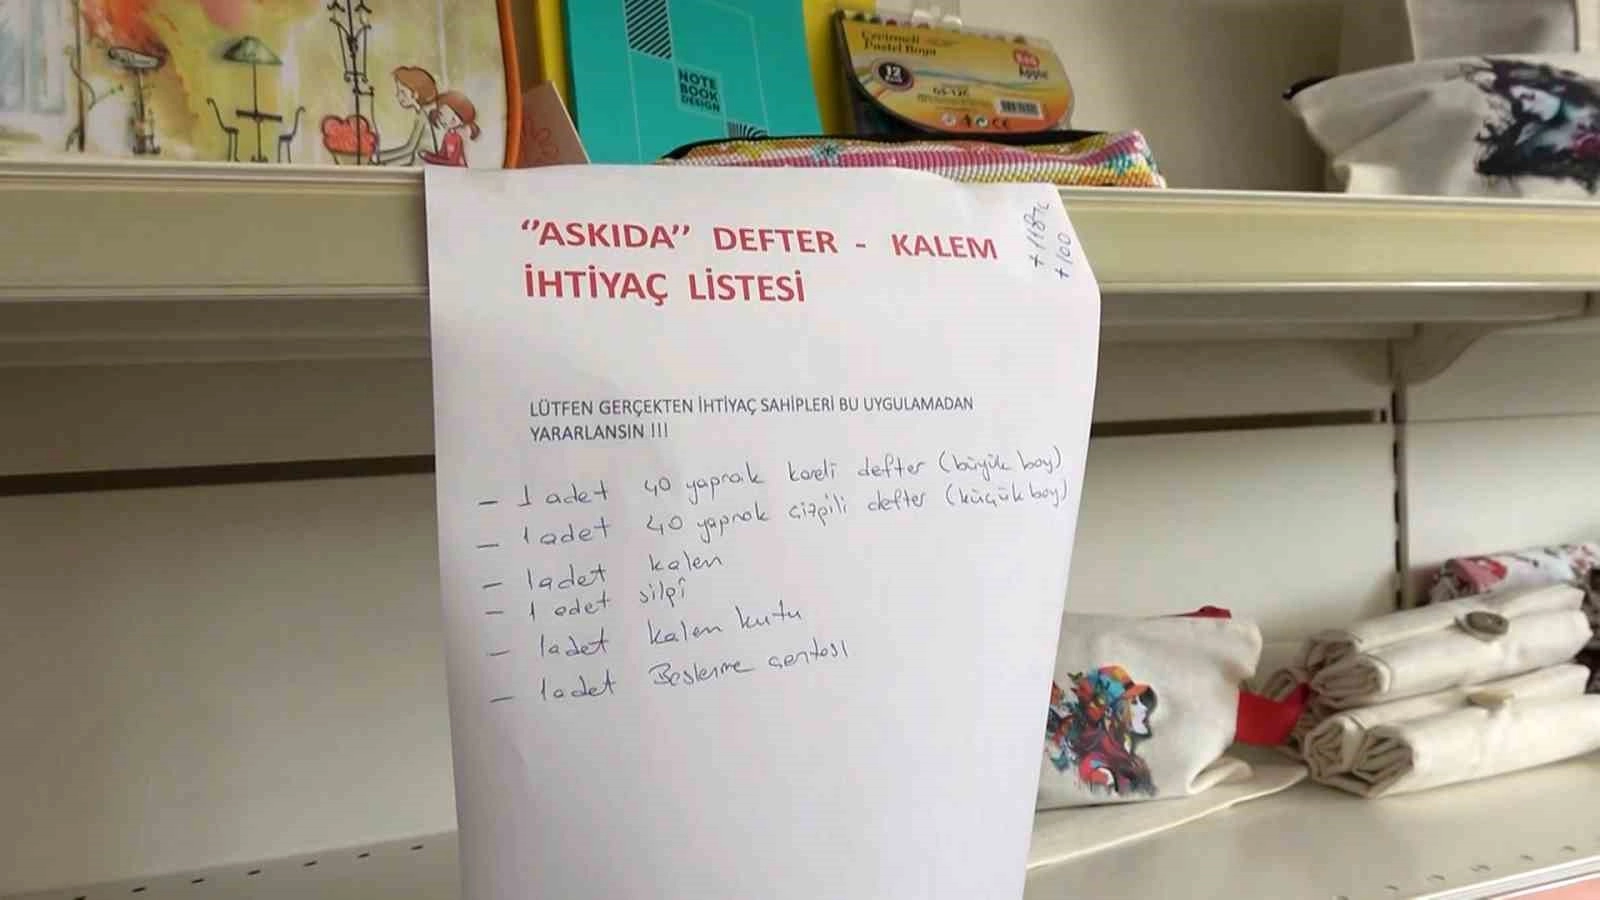 Çevirmeli
Pastel Boya
Red
Apple
12
GS-12C
NOTE
BOOK
DESIGN
+118TL
+100
‘’ASKIDA’’ DEFTER - KALEM
İHTİYAÇ LİSTESİ
LÜTFEN GERÇEKTEN İHTİYAÇ SAHİPLERİ BU UYGULAMADAN
YARARLANSIN !!!
- 1 adet 40 yaprak kareli defter (büyük boy)
- 1 adet 40 yaprak çizgili defter (küçük boy)
- 1 adet kalem
- 1 adet silgi
- 1 adet kalem kutu
- 1 adet Beslenme çantası